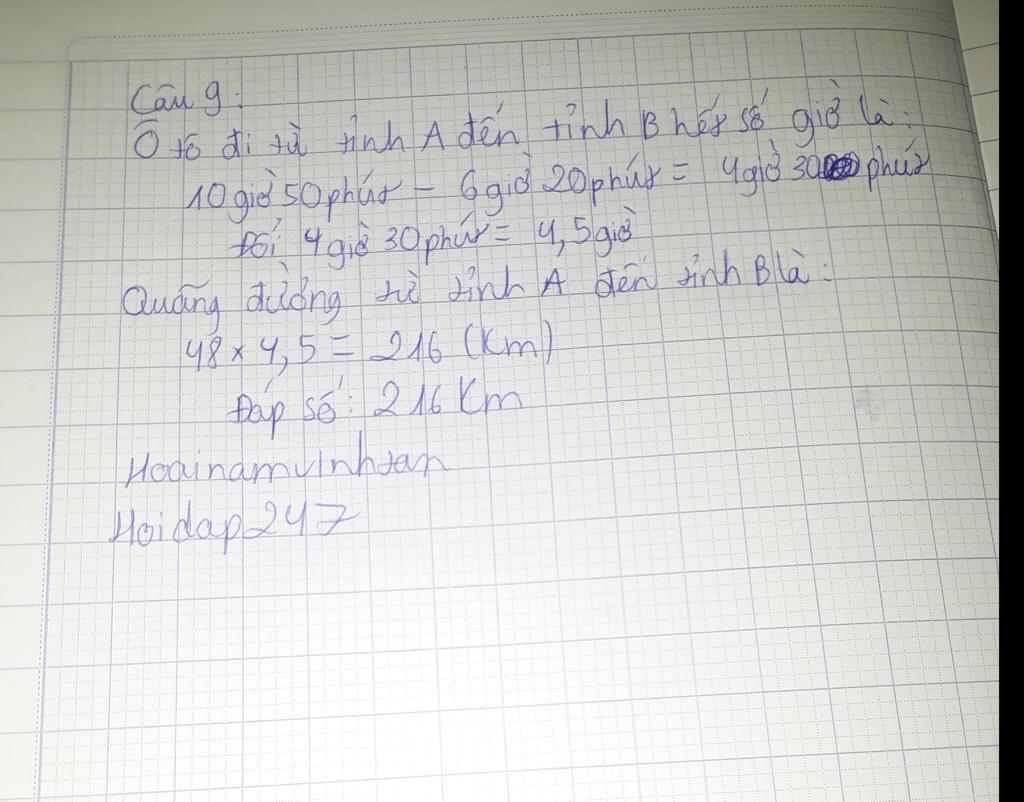 Câu 9:
Ô tô đi từ tỉnh A đến tỉnh B hết số giờ là:
10 giờ 50 phút - 6 giờ 20 phút = 4 giờ 30 phút
Đổi 4 giờ 30 phút = 4,5 giờ
Quãng đường từ tỉnh A đến tỉnh B là:
48 x 4,5 = 216 (Km)
Đáp số: 216 Km
Hoainamvinhtan
Hoidap247